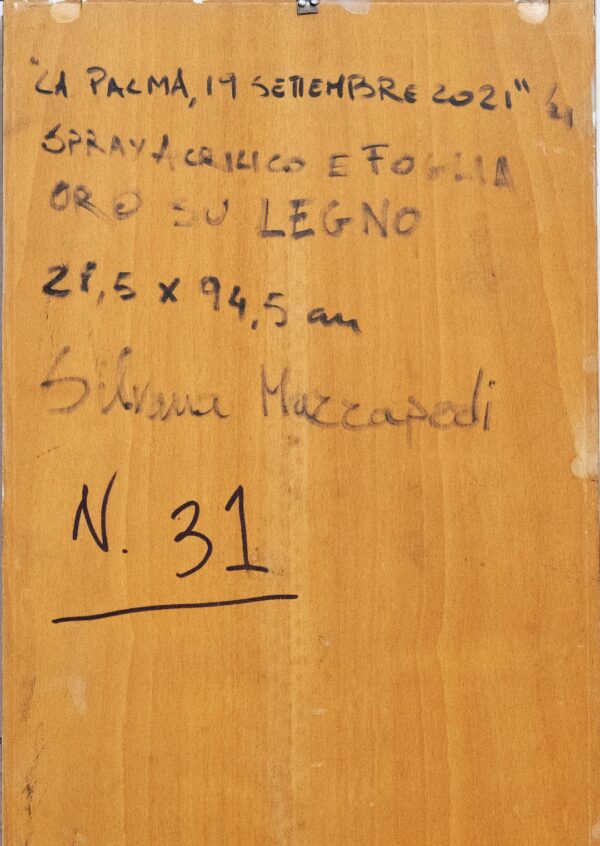 "LA PALMA, 19 SETTEMBRE 2021"
SPRAY ACRILICO E FOGLIA
ORO SU LEGNO
28,5 x 94,5 cm
Silvana Mazzapodi
N. 31